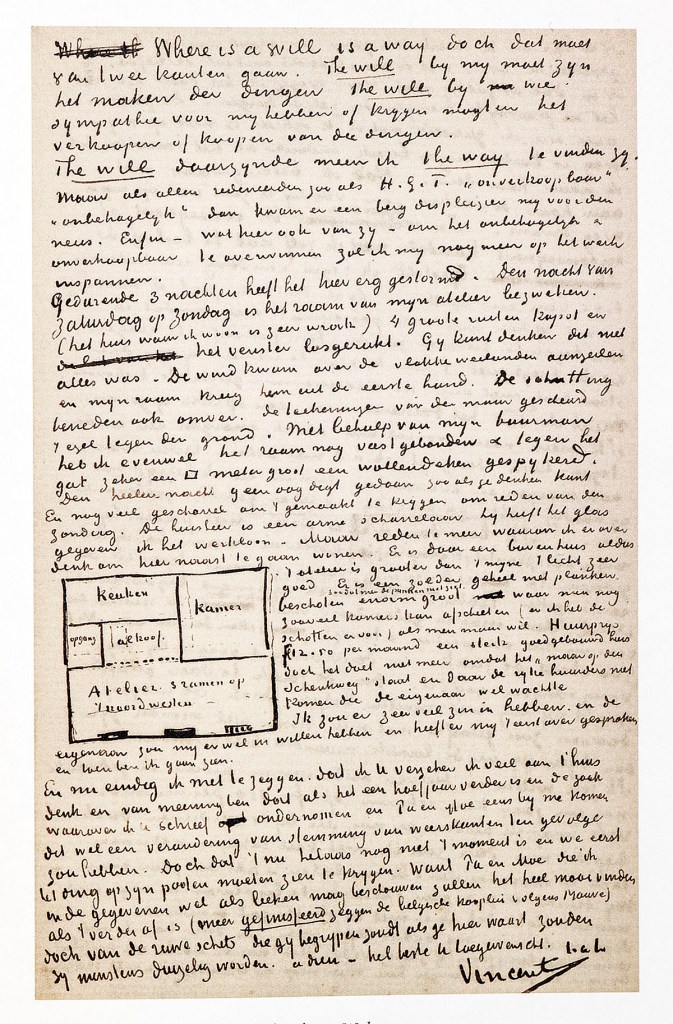 Where is a will is a way doch dat moet
van twee kanten gaan. The will by my moet zyn
het maken der dingen the will by wie
sympathie voor my hebben of krygen mogten het
verkoopen of koopen van die dingen.
The will daarzynde meen ik the way te vinden zy.
Maar als allen redeneerden zoo als H.G.T. „onverkoopbaar"
„onbehagelyk" dan kwam er een berg displeizier my voor den
neus. Enfin – wat hier ook van zy – om het onbehagelyk &
onverkoopbaar te overwinnen zal ik my nog meer op het werk
inspannen.
Gedurende 3 nachten heeft het hier erg gestormd. Den nacht van
Zaturdag op Zondag is het raam van myn atelier bezweken.
(het huis waar ik woon is zeer wrak) 4 groote ruiten kapot en
het venster losgerukt. Gy kunt denken dat niet
alles was. De wind kwam over de vlakke weilanden aanzeilen
en myn raam kreeg hem uit de eerste hand. De schutting
beneden ook omver. de teekeningen van den muur gescheurd
'ezel tegen den grond. Met behulp van myn buurman
heb ik evenwel het raam nog vastgebonden & tegen het
gat zeker een □ meter groot een wollendeken gespykerd.
Den heelen nacht geen oog digt gedaan zoo als ge denken kunt
En nog veel gescharrel om 't gemaakt te krygen om reden van den
Zondag. De huisheer is een arme scharrelaar hy heeft het glas
gegeven ik het werkloon. Maar reden te meer waarom ik er over
denk om hier naast te gaan wonen. Er is daar een bovenhuis aldus
't atelier is grooter dan 't myne 't licht zeer
goed. Er is een zolder geheel met planken
beschoten zoodat men de pannen niet ziet enorm groot waar men nog
zooveel kamers kan afschieten (en ik heb de
schotten ervoor) als men maar wil. Huurprys
f12.50 per maand een sterk goedgebouwd huis
doch het doet niet meer omdat het „maar op den
Schenkweg" staat en daar de ryke huurders niet
komen die de eigenaar wel wachtte
Ik zou er zeer veel zin in hebben. en de
eigenaar zou my er wel in willen hebben en heeft er my 't eerst over gesproken
en toen ben ik gaan zien.
Keuken
Kamer
opgang
alkoof
Atelier. 3 ramen op
't noordwesten
En nu eindig ik met te zeggen. dat ik U verzeker ik veel aan t'huis
denk en van meening ben dat als het een half jaar verder is en de zaak
waarover ik U schreef ondernomen en Pa en Moe eens by me komen
dit wel een verandering van stemming van weerskanten ten gevolge
zou hebben. Doch dat 't nu helaas nog niet 't moment is en we eerst
't ding op zyn pooten moeten zien te krygen. Want Pa en Moe die ik
in de gegevenen wel als leeken mag beschouwen zullen het heel mooi vinden
als 't verder af is (meer gefinisseerd zeggen de belgische kooplui volgens Mauve)
doch van de ruwe schets die gy begrypen zoudt als ge hier waart zouden
zy minstens duizelig worden. adieu – het beste U toegewenscht. t.à t.
Vincent